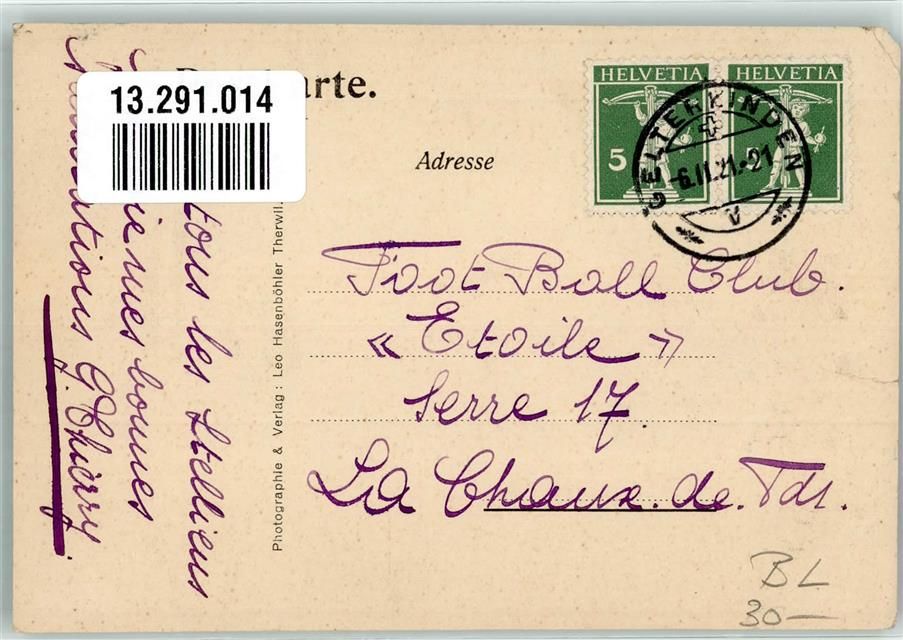 13.291.014
arte.
Adresse
HELVETIA HELVETIA
5
GELTERKINDEN
-6.II.21.-21
V
Foot Ball Club.
« Etoile »
Serre 17.
La Chaux. de. Fds.
tous les Stelliens
mes bonnes
salutations G. Thiéry.
Photographie & Verlag: Leo Hasenböhler Therwil.
BL
30—